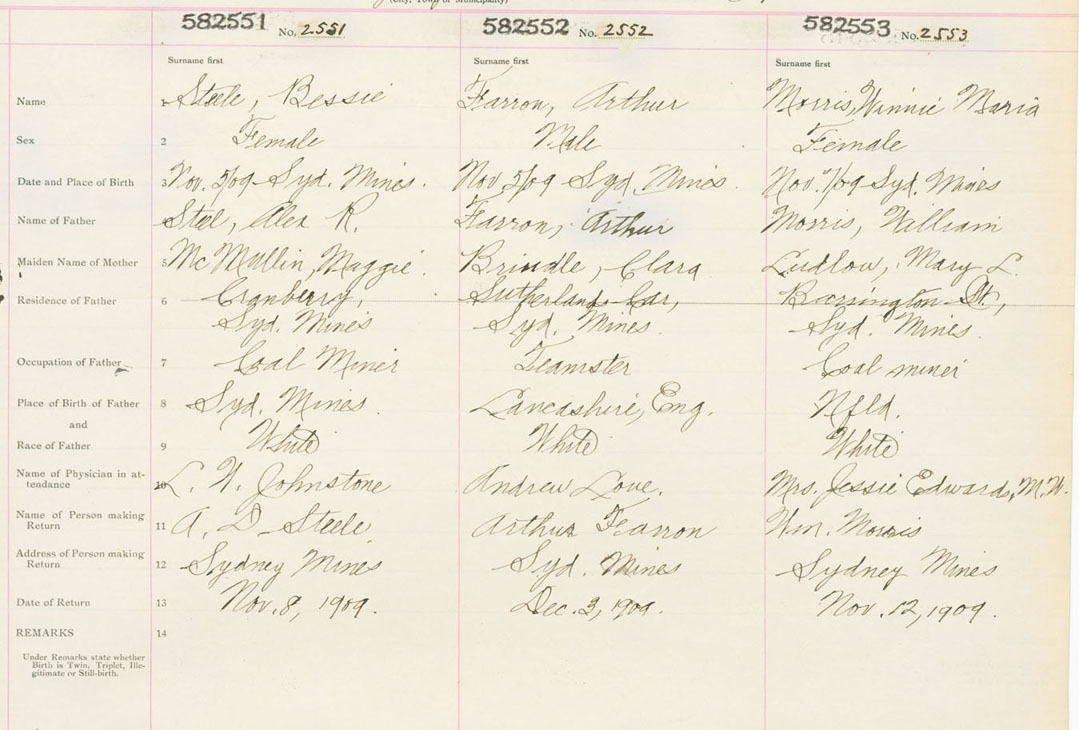 (City, Town or Municipality)
582551 No. 2551 582552 No. 2552 582553 No. 2553
Surname first Surname first Surname first
Name 1 Steele, Bessie Farron, Arthur Morris, Winnie Maria
Sex 2 Female Male Female
Date and Place of Birth 3 Nov. 5/09 Syd. Mines. Nov 5/09 Syd. Mines. Nov. 7/09 Syd. Mines
Name of Father Steel, Alex R. Farron, Arthur Morris, William
Maiden Name of Mother 5 McMullin, Maggie. Brindle, Clara Ludlow, Mary L.
Residence of Father 6 Cranberry, Sutherlands Cor, Barrington St,
Syd. Mines Syd. Mines. Syd. Mines.
Occupation of Father 7 Coal Miner Teamster Coal miner
Place of Birth of Father 8 Syd. Mines. Lancashire, Eng. Nfld.
and
Race of Father 9 White White White
Name of Physician in at-
tendance 10 L. W. Johnstone Andrew Love. Mrs. Jessie Edwards, M.W.
Name of Person making
Return 11 A. D. Steele Arthur Fearron Wm. Morris
Address of Person making
Return 12 Sydney Mines Syd. Mines Sydney Mines
Date of Return 13 Nov. 8, 1909. Dec. 3, 1909. Nov. 12, 1909.
REMARKS 14
Under Remarks state whether
Birth is Twin, Triplet, Ille-
gitimate or Still-birth.